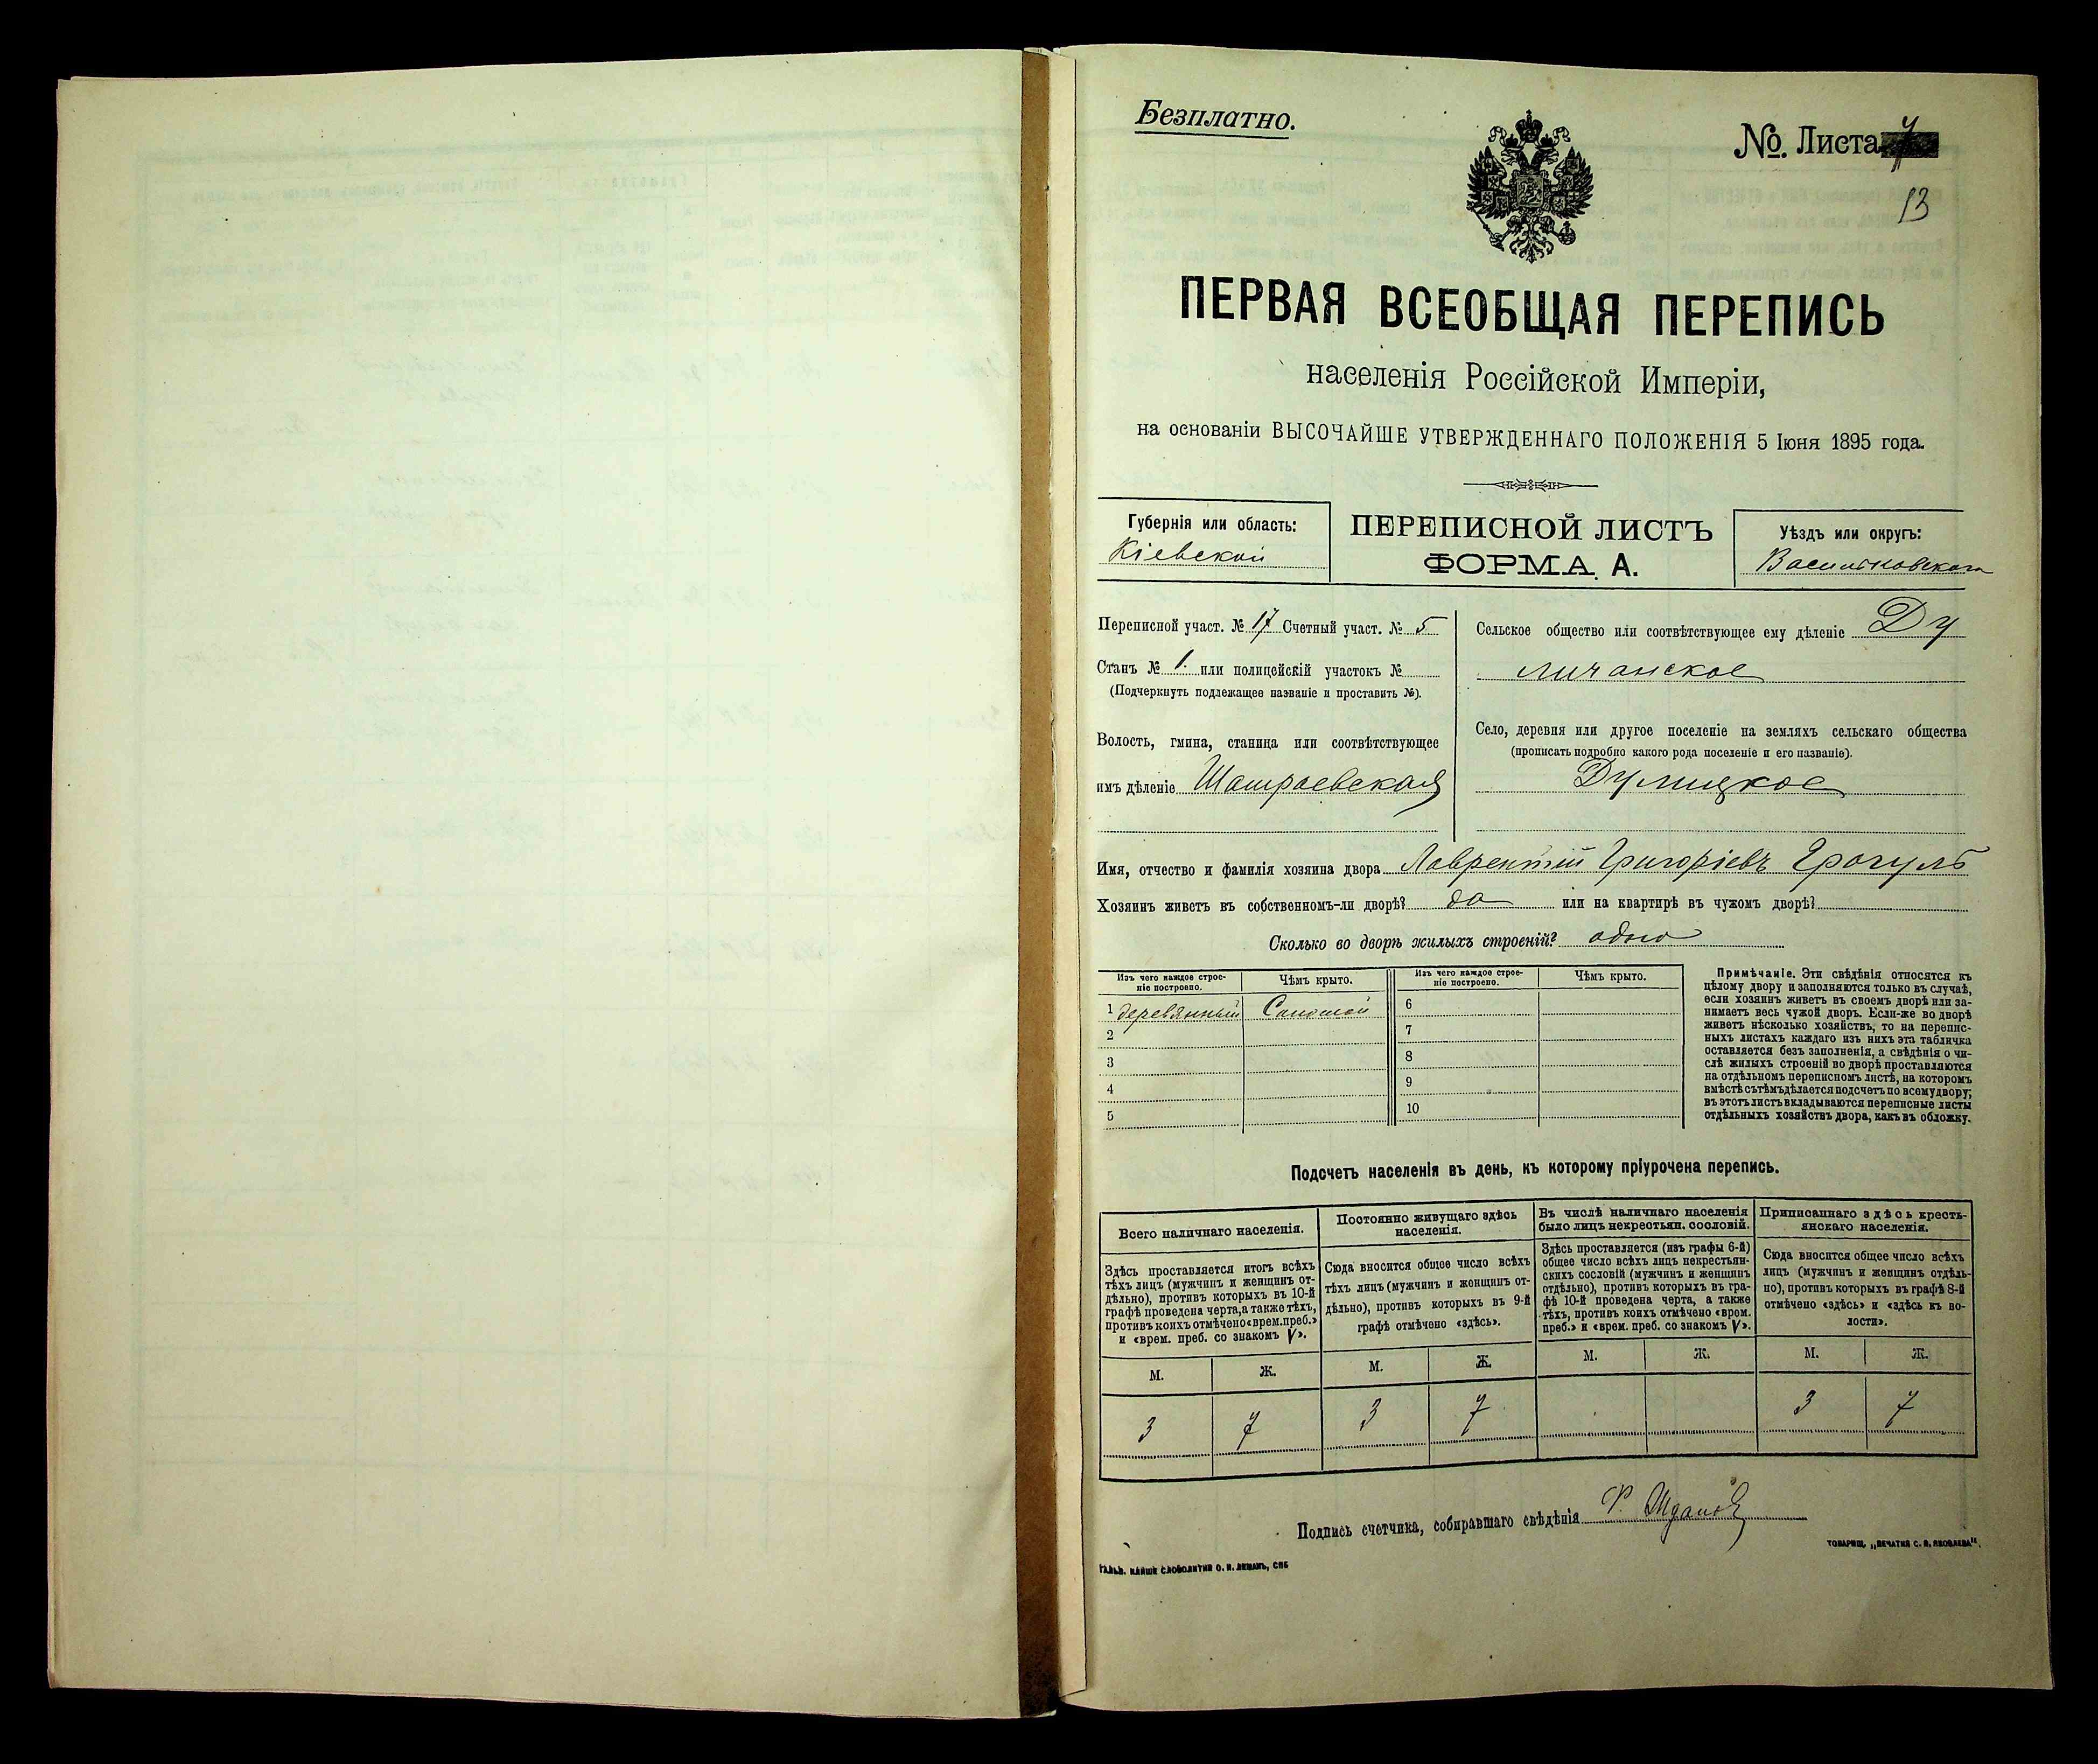 Безплатно.
№. Листа 7
13
ПЕРВАЯ ВСЕОБЩАЯ ПЕРЕПИСЬ
населенія Россійской Имперіи,
на основаніи ВЫСОЧАЙШЕ УТВЕРЖДЕННАГО ПОЛОЖЕНІЯ 5 Іюня 1895 года.
Губернія или область:
Кіевской
ПЕРЕПИСНОЙ ЛИСТЪ
ФОРМА А.
Уѣздъ или округъ:
Васильковскаго
Переписной участ. № 17 Счетный участ. № 5
Станъ № 1. или полицейскій участокъ №
(Подчеркнуть подлежащее названіе и проставить №).
Волость, гмина, станица или соотвѣтствующее
имъ дѣленіе Шамраевская
Сельское общество или соотвѣтствующее ему дѣленіе Ду
личанское
Село, деревня или другое поселеніе на земляхъ сельскаго общества
(прописать подробно какого рода поселеніе и его названіе).
Дулицкое
Имя, отчество и фамилія хозяина двора Лаврентій Григоріевъ Грогуль
Хозяинъ живетъ въ собственномъ-ли дворѣ? да или на квартирѣ въ чужомъ дворѣ?
Сколько во дворѣ жилыхъ строеній? одно
Изъ чего каждое строе-
ніе построено.
Чѣмъ крыто.
Изъ чего каждое строе-
ніе построено.
Чѣмъ крыто.
1 деревянный Соломой 6
2 7
3 8
4 9
5 10
Примѣчаніе. Эти свѣдѣнія относятся къ
цѣлому двору и заполняются только въ случаѣ,
если хозяинъ живетъ въ своемъ дворѣ или за-
нимаетъ весь чужой дворъ. Если-же во дворѣ
живетъ нѣсколько хозяйствъ, то на перепис-
ныхъ листахъ каждаго изъ нихъ эта табличка
оставляется безъ заполненія, а свѣдѣнія о чи-
слѣ жилыхъ строеній во дворѣ проставляются
на отдѣльномъ переписномъ листѣ, на которомъ
вмѣстѣ съ тѣмъ дѣлается подсчетъ по всему двору;
въ этотъ листъ вкладываются переписные листы
отдѣльныхъ хозяйствъ двора, какъ въ обложку.
Подсчетъ населенія въ день, къ которому пріурочена перепись.
Всего наличнаго населенія.
Здѣсь проставляется итогъ всѣхъ
тѣхъ лицъ (мужчинъ и женщинъ от-
дѣльно), противъ которыхъ въ 10-й
графѣ проведена черта, а также тѣхъ,
противъ коихъ отмѣчено «врем. преб.»
и «врем. преб. со знакомъ V».
М. Ж.
3 7
Постоянно живущаго здѣсь
населенія.
Сюда вносится общее число всѣхъ
тѣхъ лицъ (мужчинъ и женщинъ от-
дѣльно), противъ которыхъ въ 9-й
графѣ отмѣчено «здѣсь».
М. Ж.
3 7
Въ числѣ наличнаго населенія
было лицъ некрестьян. сословій.
Здѣсь проставляется (изъ графы 6-й)
общее число всѣхъ лицъ некрестьян-
скихъ сословій (мужчинъ и женщинъ
отдѣльно), противъ которыхъ въ гра-
фѣ 10-й проведена черта, а также
тѣхъ, противъ коихъ отмѣчено «врем.
преб.» и «врем. преб. со знакомъ V».
М. Ж.
Приписаннаго здѣсь кресть-
янскаго населенія.
Сюда вносится общее число всѣхъ
лицъ (мужчинъ и женщинъ отдѣль-
но), противъ которыхъ въ графѣ 8-й
отмѣчено «здѣсь» и «здѣсь къ во-
лости».
М. Ж.
3 7
Подпись счетчика, собиравшаго свѣдѣнія
СЛОВОЛИТНИ О. И. ЛЕМАНЪ, СПБ
ТОВАРИЩ. „ПЕЧАТНЯ С. П. ЯКОВЛЕВА“.